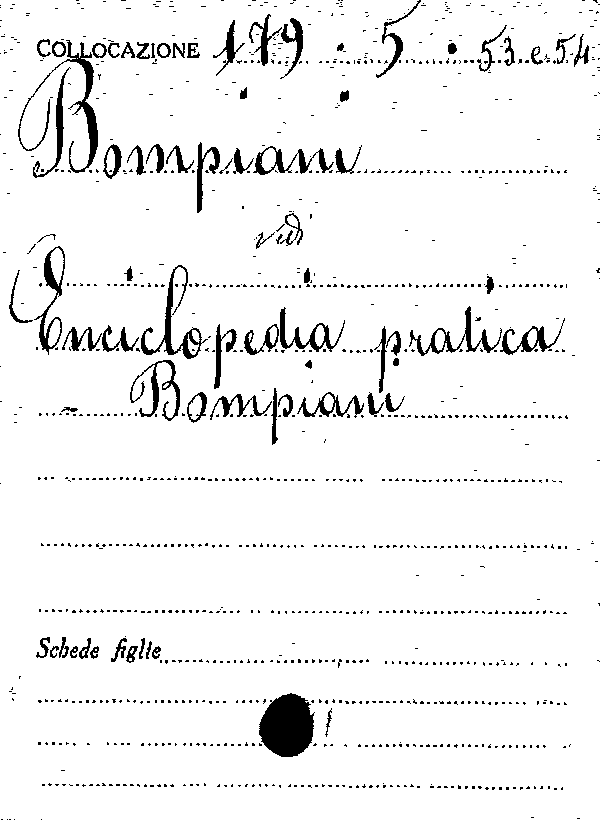 COLLOCAZIONE 179 . 5 . 53 e 54
Bompiani
vedi
Enciclopedia pratica
Bompiani
Schede figlie